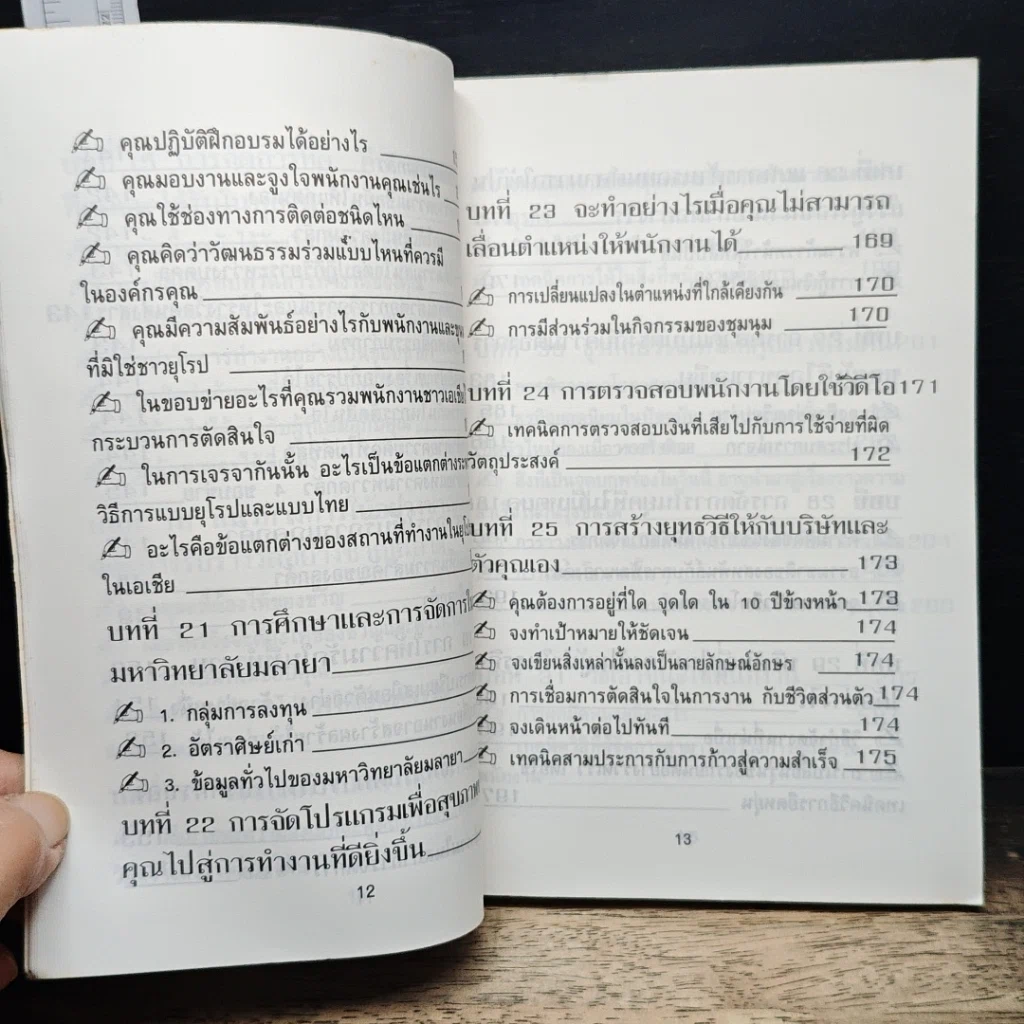 คุณปฏิบัติฝึกอบรมได้อย่างไร
คุณมอบงานและจูงใจพนักงานคุณเช่นไร
คุณใช้ช่องทางการติดต่อชนิดไหน
คุณคิดว่าวัฒนธรรมร่วมแบบไหนที่ควรมี
ในองค์กรคุณ
คุณมีความสัมพันธ์อย่างไรกับพนักงานและ
ที่มิใช่ชาวยุโรป
ในขอบข่ายอะไรที่คุณรวมพนักงานชาวเอเชีย
กระบวนการตัดสินใจ
ในการเจรจากันนั้น อะไรเป็นข้อแตกต่าง
วิธีการแบบยุโรปและแบบไทย
อะไรคือข้อแตกต่างของสถานที่ทำงานใน
ในเอเชีย
บทที่ 21 การศึกษาและการจัดการ
มหาวิทยาลัยมลายา
1. กลุ่มการลงทุน
2. อัตราศิษย์เก่า
3. ข้อมูลทั่วไปของมหาวิทยาลัยมลายา
บทที่ 22 การจัดโปรแกรมเพื่อสุขภาพ
คุณไปสู่การทำงานที่ดียิ่งขึ้น
12
บทที่ 23 จะทำอย่างไรเมื่อคุณไม่สามารถ
เลื่อนตำแหน่งให้พนักงานได้ 169
การเปลี่ยนแปลงในตำแหน่งที่ใกล้เคียงกัน 170
การมีส่วนร่วมในกิจกรรมของชุมนุม 170
บทที่ 24 การตรวจสอบพนักงานโดยใช้วิดีโอ 171
เทคนิคการตรวจสอบเงินที่เสียไปกับการใช้จ่ายที่ผิด
วัตถุประสงค์ 172
บทที่ 25 การสร้างยุทธวิธีให้กับบริษัทและ
ตัวคุณเอง 173
คุณต้องการอยู่ที่ใด จุดใด ใน 10 ปีข้างหน้า 173
จงทำเป้าหมายให้ชัดเจน 174
จงเขียนสิ่งเหล่านั้นลงเป็นลายลักษณ์อักษร 174
การเชื่อมการตัดสินใจในการงาน กับชีวิตส่วนตัว 174
จงเดินหน้าต่อไปทันที 174
เทคนิคสามประการกับการก้าวสู่ความสำเร็จ 175
13